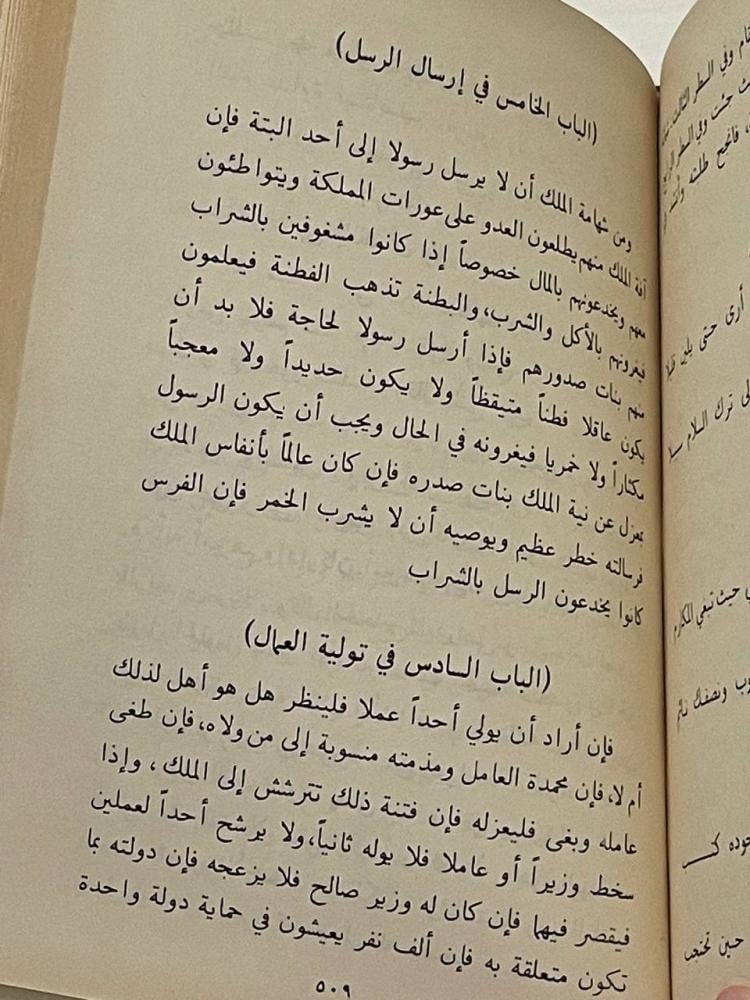 (الباب الخامس في إرسال الرسل)
ومن شهامة الملك أن لا يرسل رسولا إلى أحد البتة فإن
آفة الملك منهم يطلعون العدو على عورات المملكة ويتواطئون
معهم ويخدعونهم بالمال خصوصاً إذا كانوا مشغوفين بالشراب
فيغرونهم بالأكل والشرب، والبطنة تذهب الفطنة فيعلمون
منهم بنات صدورهم فإذا أرسل رسولا لحاجة فلا بد أن
يكون عاقلا فطناً متيقظاً ولا يكون حديداً ولا معجباً
مكثاراً ولا خمريا فيغرونه في الحال ويجب أن يكون الرسول
بمعزل عن نية الملك بنات صدره فإن كان عالماً بأنفاس الملك
فرسالته خطر عظيم ويوصيه أن لا يشرب الخمر فإن الفرس
كانوا يخدعون الرسل بالشراب
(الباب السادس في تولية العمال)
فإن أراد أن يولي أحداً عملا فلينظر هل هو أهل لذلك
أم لا، فإن محمدة العامل ومذمته منسوبة إلى من ولاه، فإن طغى
عامله وبغى فليعزله فإن فتنة ذلك تترشش إلى الملك، وإذا
سخط وزيراً أو عاملا فلا يوله ثانياً، ولا يرشح أحداً لعملين
فيقصر فيهما فإن كان له وزير صالح فلا يزعجه فإن دولته بما
تكون متعلقة به فإن ألف نفر يعيشون في حماية دولة واحدة
٥٠٩
وفي السطر الثالث
جئت وفي السطر
فانجح طلبته
أرى حتى يلين
ترك السلام
حيث تبغي المكارم
ونصفك نائم
حين